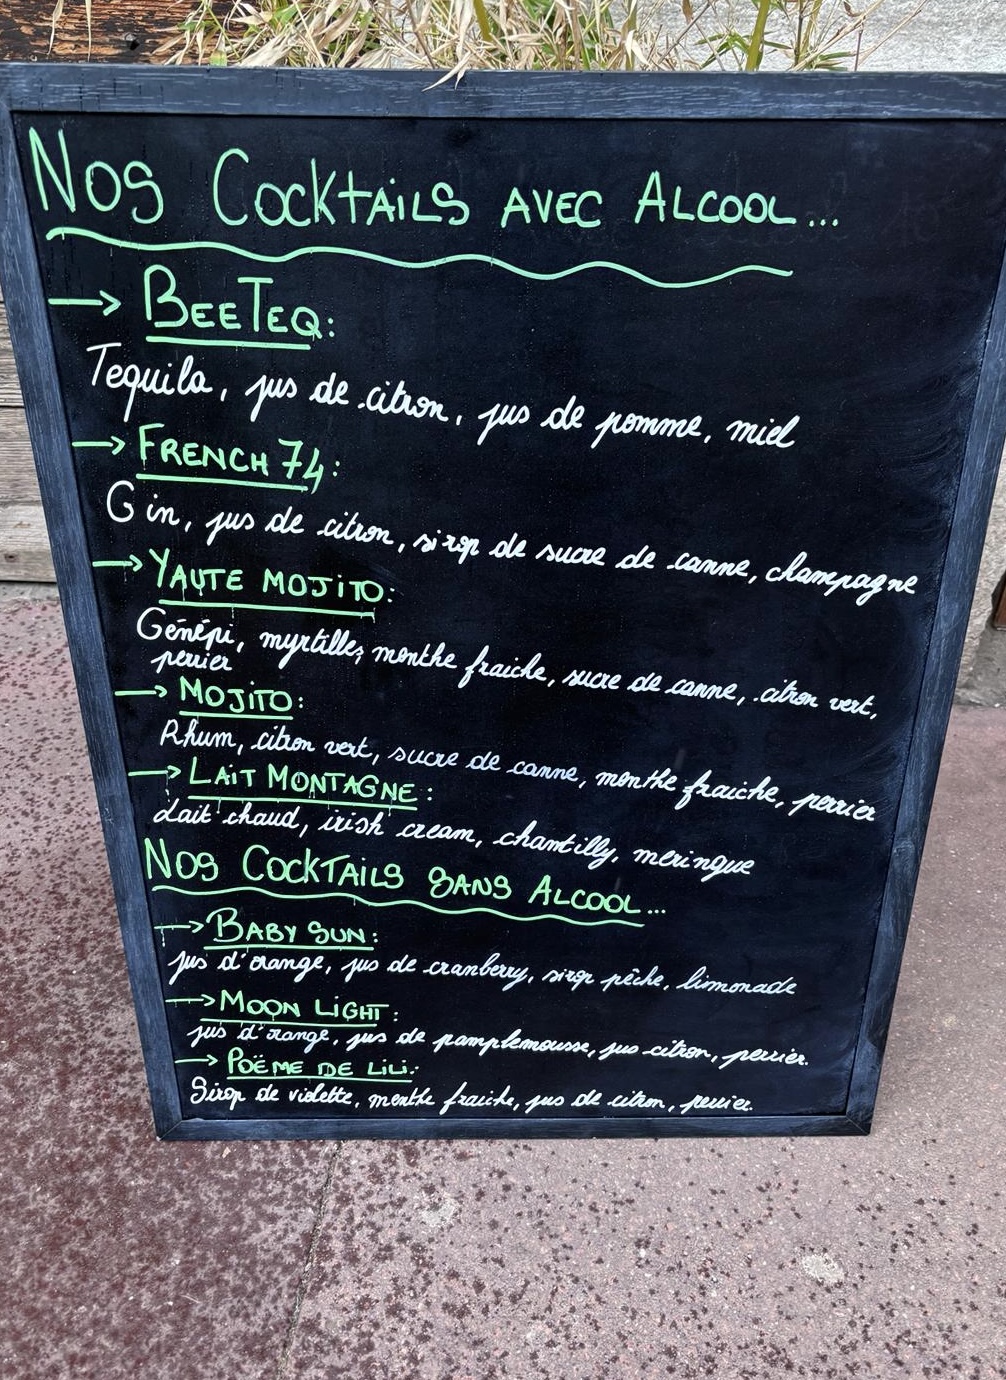 Nos Cocktails avec Alcool...
→ BeeTeq:
Tequila, jus de citron, jus de pomme, miel
→ French 74:
Gin, jus de citron, sirop de sucre de canne, champagne
→ Yaute Mojito:
Génépi, myrtilles, menthe fraiche, sucre de canne, citron vert,
perrier
→ Mojito:
Rhum, citron vert, sucre de canne, menthe fraiche, perrier
→ Lait Montagne:
Lait chaud, irish cream, chantilly, meringue
Nos Cocktails sans Alcool...
→ Baby Sun:
jus d'orange, jus de cranberry, sirop pêche, limonade
→ Moon Light:
jus d'orange, jus de pamplemousse, jus citron, perrier.
→ Poëme de Lili:
Sirop de violette, menthe fraiche, jus de citron, perrier.